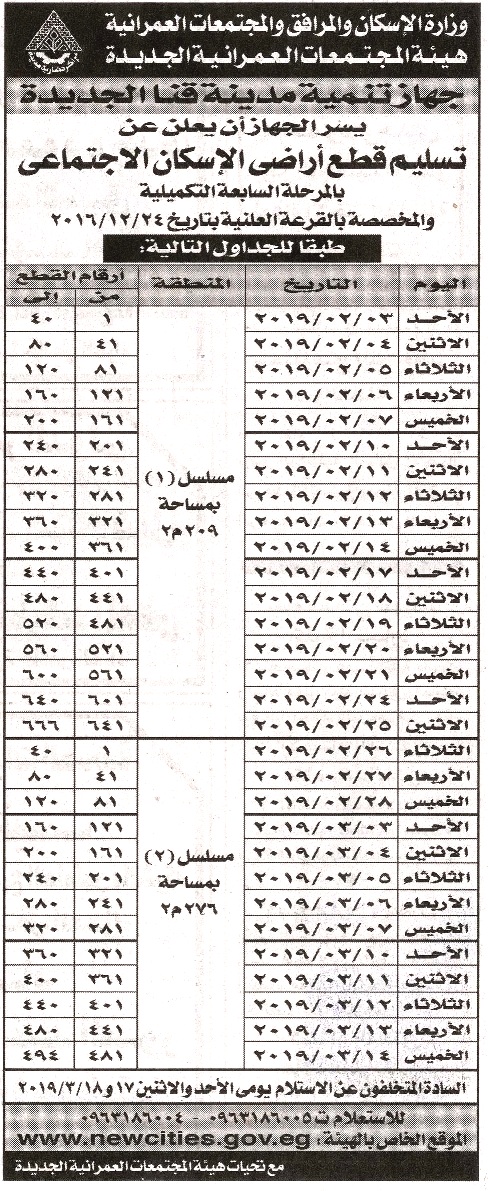 وزارة الإسكان والمرافق والمجتمعات العمرانية
هيئة المجتمعات العمرانية الجديدة
جهاز تنمية مدينة قنا الجديدة
يسر الجهاز أن يعلن عن
تسليم قطع أراضى الإسكان الاجتماعى
بالمرحلة السابعة التكميلية
والمخصصة بالقرعة العلنية بتاريخ ٢٠١٦/١٢/٢٤
طبقا للجداول التالية:
اليوم التاريخ المنطقة أرقام القطع
من إلى
الأحد ٢٠١٩/٠٢/٠٣ ١ ٤٠
الاثنين ٢٠١٩/٠٢/٠٤ ٤١ ٨٠
الثلاثاء ٢٠١٩/٠٢/٠٥ ٨١ ١٢٠
الأربعاء ٢٠١٩/٠٢/٠٦ ١٢١ ١٦٠
الخميس ٢٠١٩/٠٢/٠٧ ١٦١ ٢٠٠
الأحد ٢٠١٩/٠٢/١٠ ٢٠١ ٢٤٠
الاثنين ٢٠١٩/٠٢/١١ مسلسل (١) ٢٤١ ٢٨٠
الثلاثاء ٢٠١٩/٠٢/١٢ بمساحة ٢٨١ ٣٢٠
الأربعاء ٢٠١٩/٠٢/١٣ ٢٠٩م٢ ٣٢١ ٣٦٠
الخميس ٢٠١٩/٠٢/١٤ ٣٦١ ٤٠٠
الأحد ٢٠١٩/٠٢/١٧ ٤٠١ ٤٤٠
الاثنين ٢٠١٩/٠٢/١٨ ٤٤١ ٤٨٠
الثلاثاء ٢٠١٩/٠٢/١٩ ٤٨١ ٥٢٠
الأربعاء ٢٠١٩/٠٢/٢٠ ٥٢١ ٥٦٠
الخميس ٢٠١٩/٠٢/٢١ ٥٦١ ٦٠٠
الأحد ٢٠١٩/٠٢/٢٤ ٦٠١ ٦٤٠
الاثنين ٢٠١٩/٠٢/٢٥ ٦٤١ ٦٦٦
الثلاثاء ٢٠١٩/٠٢/٢٦ ١ ٤٠
الأربعاء ٢٠١٩/٠٢/٢٧ ٤١ ٨٠
الخميس ٢٠١٩/٠٢/٢٨ ٨١ ١٢٠
الأحد ٢٠١٩/٠٣/٠٣ ١٢١ ١٦٠
الاثنين ٢٠١٩/٠٣/٠٤ مسلسل (٢) ١٦١ ٢٠٠
الثلاثاء ٢٠١٩/٠٣/٠٥ بمساحة ٢٠١ ٢٤٠
الأربعاء ٢٠١٩/٠٣/٠٦ ٢٧٦م٢ ٢٤١ ٢٨٠
الخميس ٢٠١٩/٠٣/٠٧ ٢٨١ ٣٢٠
الأحد ٢٠١٩/٠٣/١٠ ٣٢١ ٣٦٠
الاثنين ٢٠١٩/٠٣/١١ ٣٦١ ٤٠٠
الثلاثاء ٢٠١٩/٠٣/١٢ ٤٠١ ٤٤٠
الأربعاء ٢٠١٩/٠٣/١٣ ٤٤١ ٤٨٠
الخميس ٢٠١٩/٠٣/١٤ ٤٨١ ٤٩٤
السادة المتخلفون عن الاستلام يومى الأحد والاثنين ١٧ و٢٠١٩/٣/١٨
للاستعلام ت ٠٩٦٣١٨٦٠٠٥ - ٠٩٦٣١٨٦٠٠٤
الموقع الخاص بالهيئة: www.newcities.gov.eg
مع تحيات هيئة المجتمعات العمرانية الجديدة